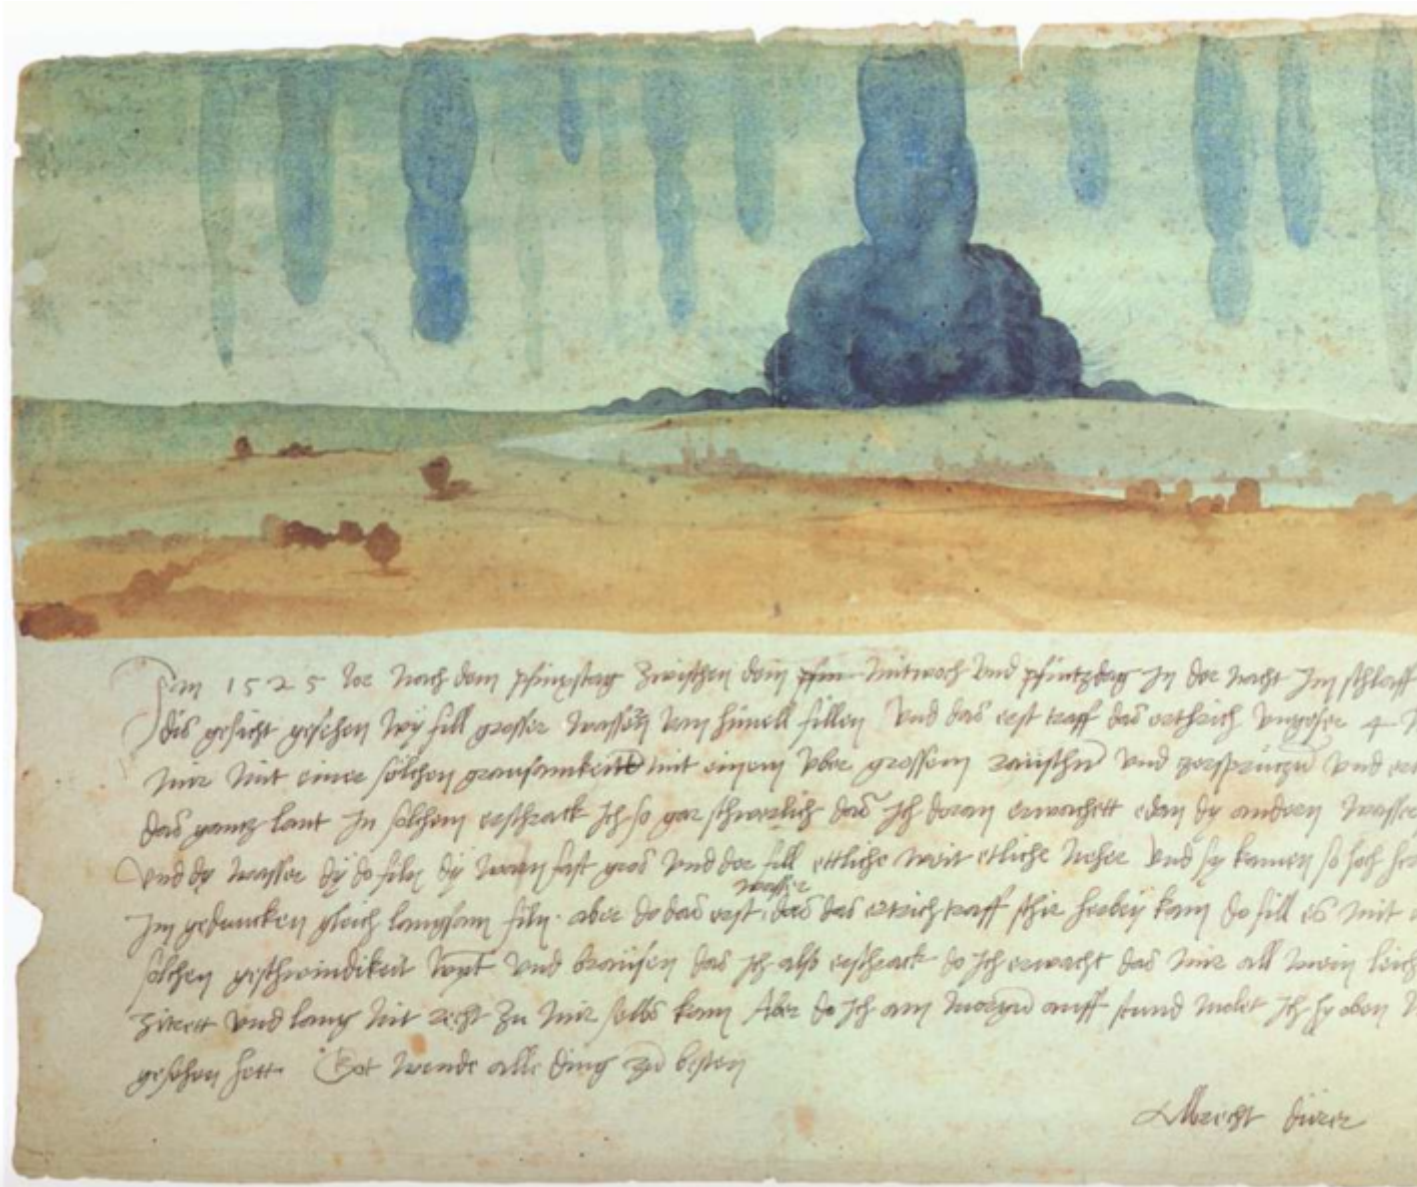 Im 1525 Jor nach dem pfinxstag zwischen dem pfin Mitwoch und pfintzdag in der nacht im schlaff
dis gesicht gesehen wy fill grosser wassern vom himell fillen Und das erst traff das erthrich ungefer 4
mir mit einer sölchen grausamkeitt mit einem uber grossem raüschn und zersprützn und
das gantz lant In sölchem erschrack ich so gar schwerlich das ich doran erwachett edan dy andern wasser
Und dy wasser dy do filn dy warn fast gros Und der fill ettliche weit etliche neher Und sy kamen so hoch
im gedancken gleich langsam filn. aber do das erst wasser das das ertrich traff schir herbey kam do fill es mit
sölchen geschwindikeit wynt und braüsen das ich also erschrack do ich erwacht das mir all mein
zitrett und lang nit recht zu mir selbs kam Aber do ich am morgn auff stund molet ich hy oben
gesehen hett. Got wende alle ding zu besten
Albrecht dürer